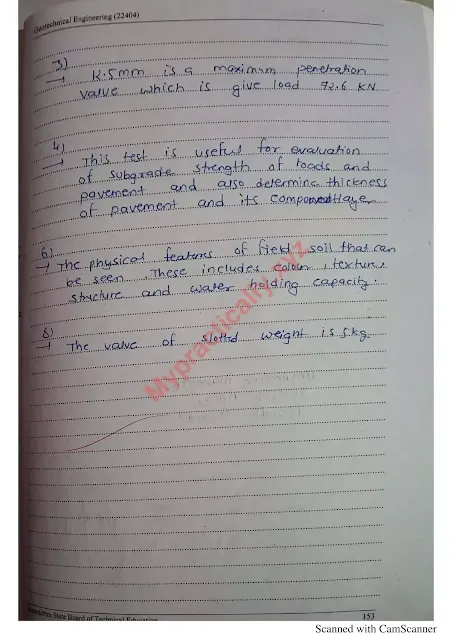 Geotechnical Engineering (22404)
3)
→ 12.5mm is a maximum penetration
value which is give load 72.6 KN
4)
→ This test is useful for evaluation
of subgrade strength of roads and
pavement and also determine thickness
of pavement and its
6)
→ The physical features of field soil that can
be seen These includes colour, texture,
structure and water holding capacity.
8)
→ The value of slotted weight is 5kg.
Mypractically.xyz
State Board of Technical Education
153
Scanned with CamScanner